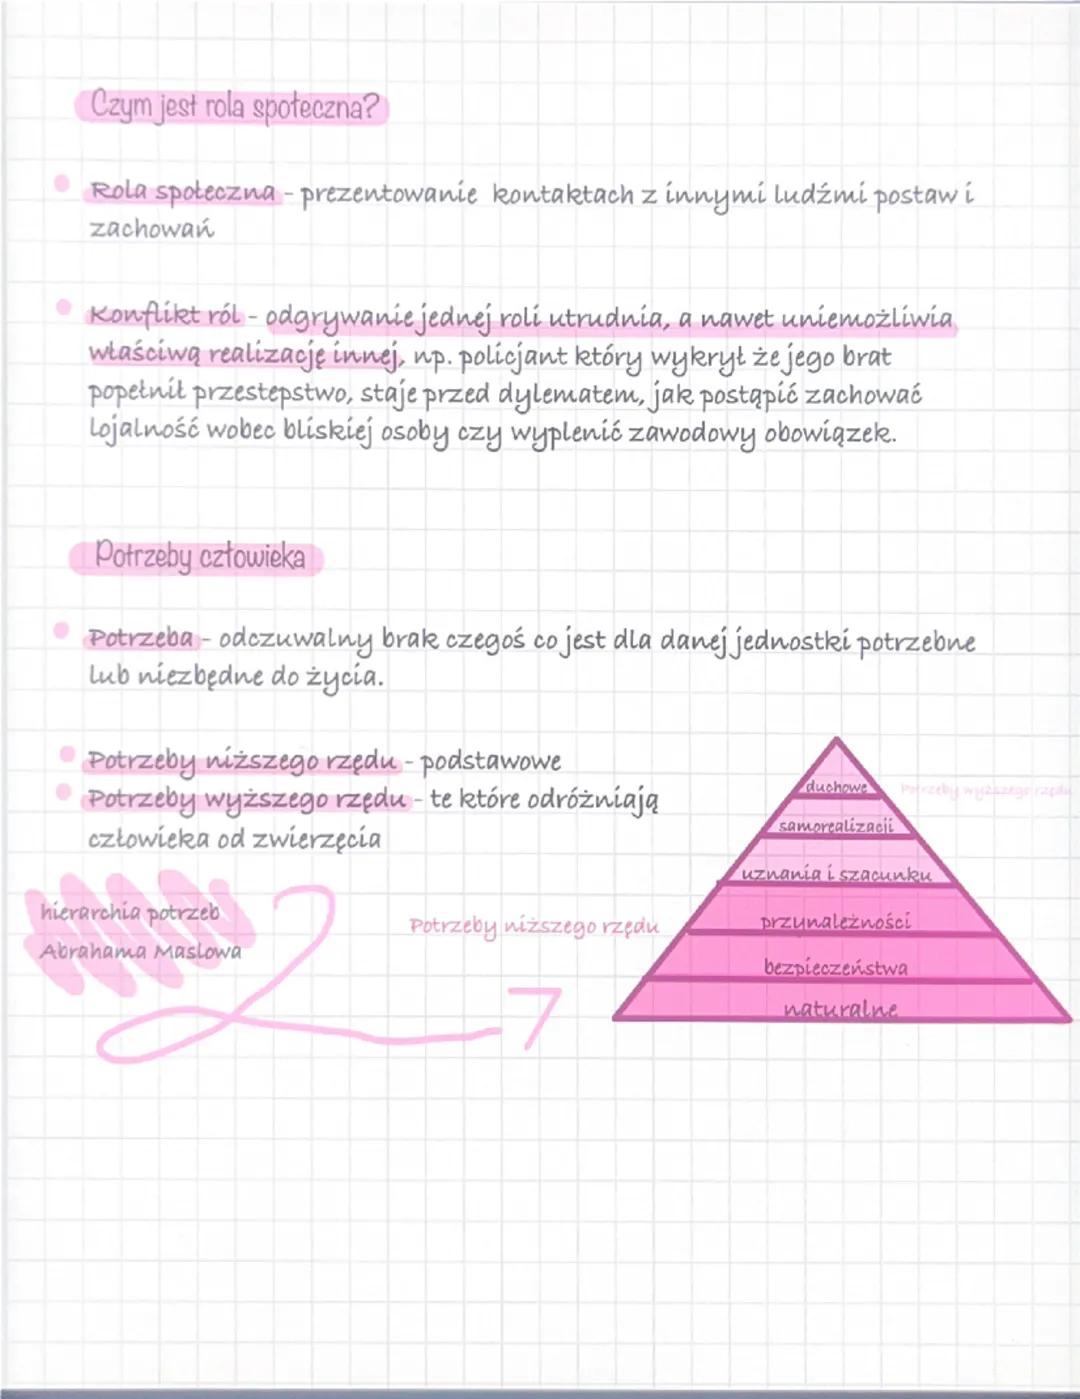 Czym jest rola społeczna?
Rola społeczna - prezentowanie kontaktach z innymi ludźmi postaw i
zachowań
Konflikt ról - odgrywanie jednej roli utrudnia, a nawet uniemożliwia
właściwą realizację innej, np. policjant który wykrył że jego brat
popełnił przestępstwo, staje przed dylematem, jak postąpić zachować
lojalność wobec bliskiej osoby czy wyplenić zawodowy obowiązek.
Potrzeby człowieka
Potrzeba - odczuwalny brak czegoś co jest dla danej jednostki potrzebne
lub niezbędne do życia.
Potrzeby niższego rzędu - podstawowe
Potrzeby wyższego rzędu - te które odróżniają
człowieka od zwierzęcia
hierarchia potrzeb
Abrahama Maslowa
Potrzeby niższego rzędu
duchowe
Potrzeby wyższego rzędu
samorealizacji
uznania i szacunku
przynależności
bezpieczeństwa
naturalne